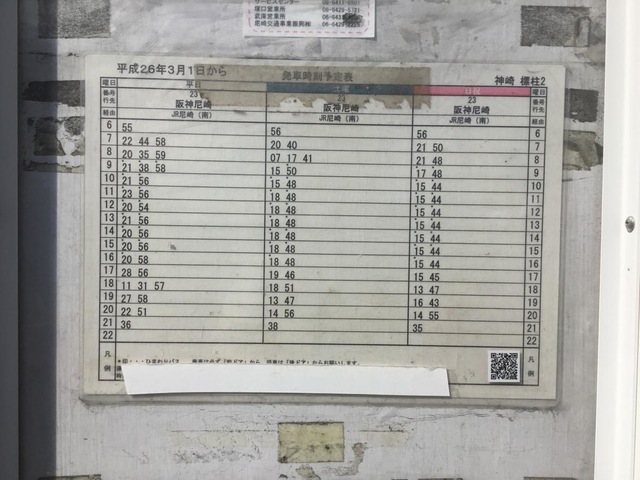 サービスセンター 06-6411-0501
塚口営業所 06-6429-5121
武庫営業所
尼崎交通事業振興㈱
平成26年3月1日から 発車時刻予定表 神崎 標柱2
曜日 平日 土曜 日祝 曜日
番号 23 23 23 番号
行先 阪神尼崎 阪神尼崎 阪神尼崎 行先
経由 JR尼崎(南) JR尼崎(南) JR尼崎(南) 経由
6 55 56 56 6
7 22 44 58 20 40 21 50 7
8 20 35 59 07 17 41 21 48 8
9 21 38 58 15 50 17 48 9
10 21 56 15 48 15 44 10
11 23 56 18 48 15 44 11
12 20 54 18 48 15 44 12
13 21 56 18 48 15 44 13
14 20 56 18 48 15 44 14
15 20 56 18 48 15 44 15
16 20 58 18 48 15 44 16
17 28 56 19 46 15 45 17
18 11 31 57 18 51 13 47 18
19 27 58 13 47 16 43 19
20 22 51 14 56 14 55 20
21 36 38 35 21
22 22
凡例 *印・・・ひまわりバス 乗車は必ず「前ドア」から、降車は「後ドア」からお願いします。 凡例